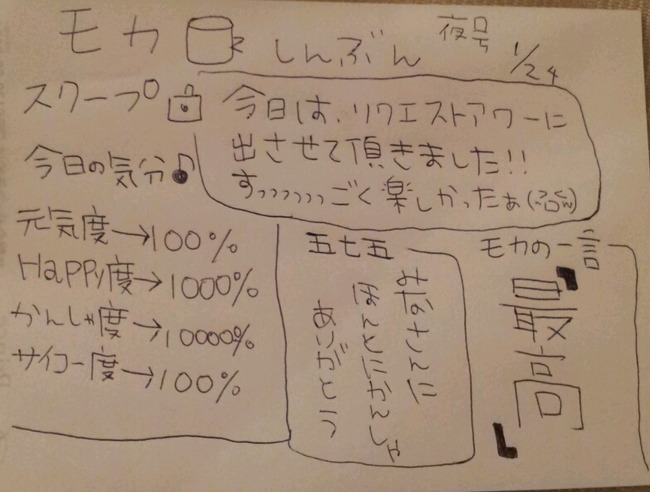 モカしんぶん 夜号 1/24
スクープ
今日は、リクエストアワーに
出させて頂きました!!
すっっっっっっごく楽しかったぁ
今日の気分♪
元気度→100%
Happy度→1000%
かんしゃ度→10000%
サイコー度→100%
五七五
みなさんに
ほんとにかんしゃ
ありがとう
モカの一言
「最高」